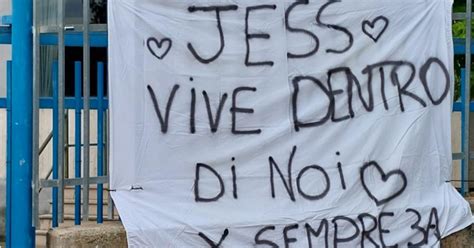 JESS
VIVE DENTRO
DI NOI
X SEMPRE 3A